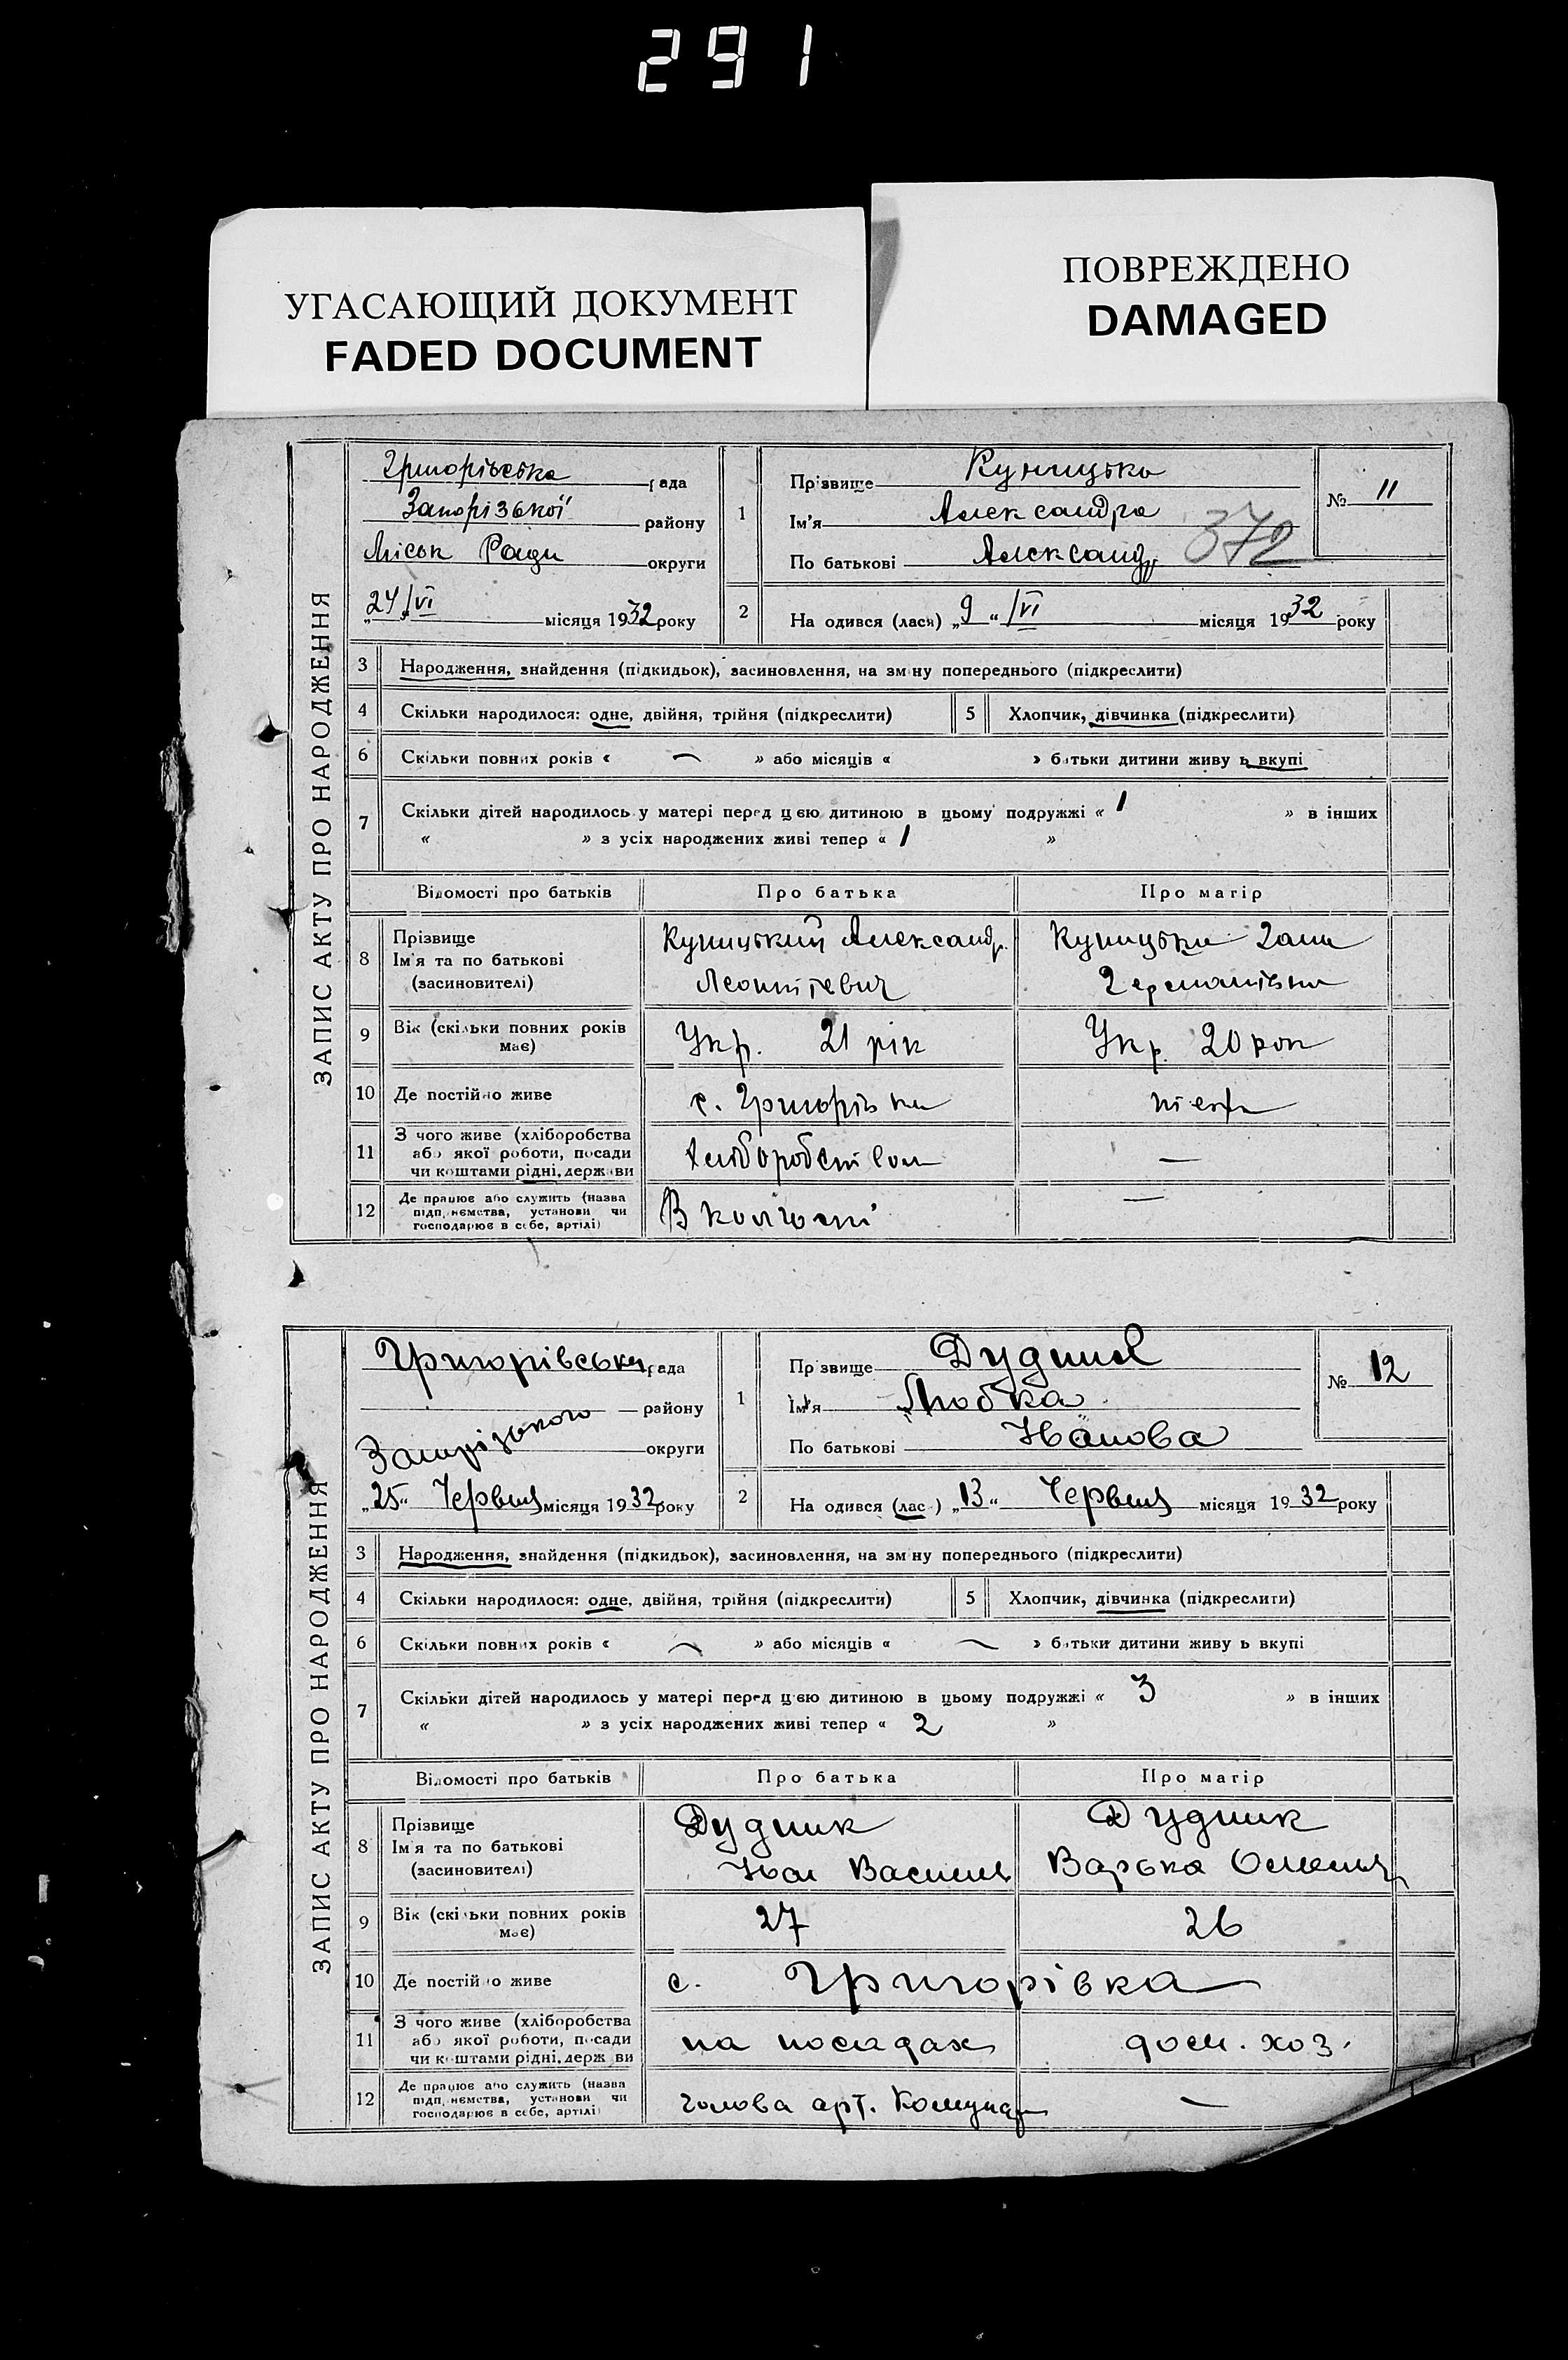 291
УГАСАЮЩИЙ ДОКУМЕНТ
FADED DOCUMENT
ПОВРЕЖДЕНО
DAMAGED
ЗАПИС АКТУ ПРО НАРОДЖЕННЯ
Григорівська рада
Запорізької району
Міськ Ради округи
„24/VI місяця 1932 року
1 Прізвище Куницька
Ім'я Александра
По батькові Александр
372
№ 11
2 На одився (лася) „9“ /VI місяця 1932 року
3 Народження, знайдення (підкидьок), засиновлення, на зміну попереднього (підкреслити)
4 Скільки народилося: одне, двійня, трійня (підкреслити) 5 Хлопчик, дівчинка (підкреслити)
6 Скільки повних років « — » або місяців « » батьки дитини живу ь вкупі
7 Скільки дітей народилось у матері перед цією дитиною в цьому подружжі « 1 » в інших
« » з усіх народжених живі тепер « 1 »
Відомості про батьків Про батька Про матір
8 Прізвище Ім'я та по батькові (засиновителі) Куницький Александр. Леонтієвич Куницька Ганна Германівна
9 Вік (скільки повних років має) Укр. 21 рік Укр. 20 рок
10 Де постійно живе с. Григорівка
11 З чого живе (хліборобства або якої роботи, посади чи коштами рідні, держави Хліборобством —
12 Де працює або служить (назва підприємства, установи чи господарює в себе, артілі) В колгоспі —
ЗАПИС АКТУ ПРО НАРОДЖЕННЯ
Григорівська рада
району
Запорізького округи
„25“ Червня місяця 1932 року
1 Прізвище Дудник
Ім'я Любка
По батькові Іванова
№ 12
2 На одився (лас ) „13“ Червня місяця 1932 року
3 Народження, знайдення (підкидьок), засиновлення, на зміну попереднього (підкреслити)
4 Скільки народилося: одне, двійня, трійня (підкреслити) 5 Хлопчик, дівчинка (підкреслити)
6 Скільки повних років « — » або місяців « — » батьки дитини живу ь вкупі
7 Скільки дітей народилось у матері перед цією дитиною в цьому подружжі « 3 » в інших
« » з усіх народжених живі тепер « 2 »
Відомості про батьків Про батька Про матір
8 Прізвище Ім'я та по батькові (засиновителі) Дудник Іван Василів Дудник Варька
9 Вік (скільки повних років має) 27 26
10 Де постійно живе с. Григорівка
11 З чого живе (хліборобства або якої роботи, посади чи коштами рідні, держави на посадах дом. хоз.
12 Де працює або служить (назва підприємства, установи чи господарює в себе, артілі) голова арт. Комунар —